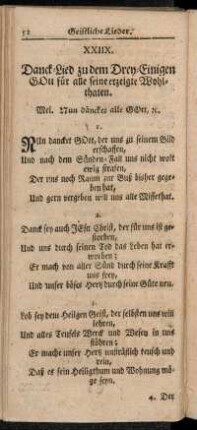 52 Geistliche Lieder.
XXIIX.
Danck-Lied zu dem Drey-Einigen
GOtt für alle seine erzeigte Wohl-
thaten.
Mel. Nun dancket alle GOtt, ꝛc.
1.
NUn dancket GOtt, der uns zu seinem Bild
erschaffen,
Und nach dem Sünden-Fall uns nicht wolt
ewig strafen,
Der uns noch Raum zur Buß bisher gege-
ben hat,
Und gern vergeben will uns alle Missethat.
2.
Danck sey auch JEsu Christ, der für uns ist ge-
storben,
Und uns durch seinen Tod das Leben hat er-
worben;
Er mach von aller Sünd durch seine Krafft
uns frey,
Und unser böses Hertz durch seine Güte neu.
3.
Lob sey dem Heiligen Geist, der selbsten uns will
lehren,
Und alles Teufels Werck und Wesen in uns
stöhren;
Er mache unser Hertz unsträflich keusch und
rein,
Daß es sein Heiligthum und Wohnung mö-
ge seyn.
4. Der